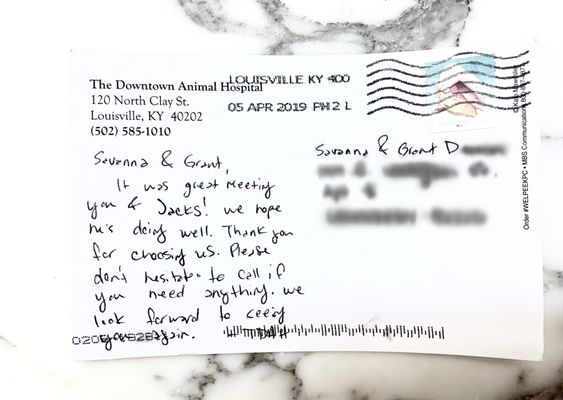 The Downtown Animal Hospital
120 North Clay St.
Louisville, KY 40202
(502) 585-1010
LOUISVILLE KY 400
05 APR 2019 PM 2 L
Savanna & Grant,
It was great meeting
you & Jacks! we hope
he's doing well. Thank you
for choosing us. Please
don't hesitate to call if
you need anything. we
look forward to seeing
you again.
Savanna & Grant D
Order #WELPEEXPC • MBS Communications